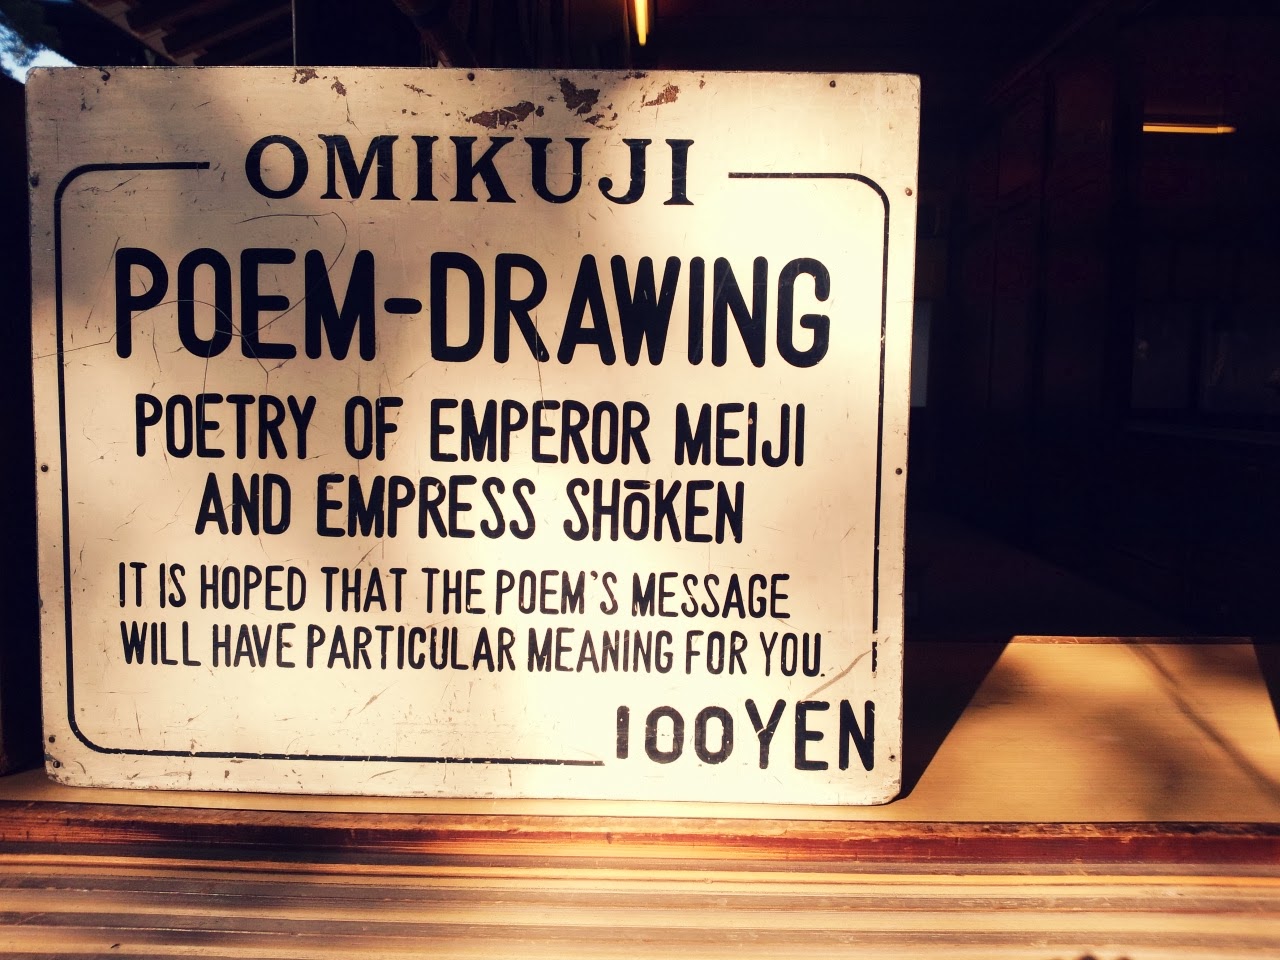 OMIKUJI
POEM-DRAWING
POETRY OF EMPEROR MEIJI
AND EMPRESS SHŌKEN
IT IS HOPED THAT THE POEM'S MESSAGE
WILL HAVE PARTICULAR MEANING FOR YOU.
100YEN